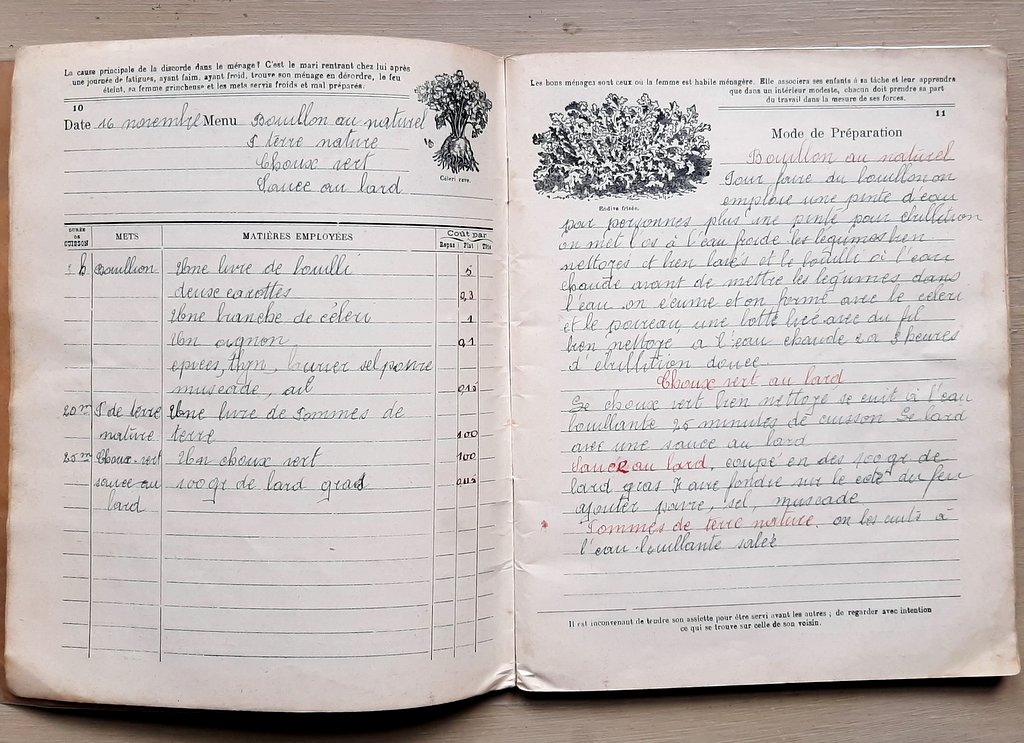 La cause principale de la discorde dans le ménage ? C'est le mari rentrant chez lui après
une journée de fatigues, ayant faim, ayant froid, trouve son ménage en désordre, le feu
éteint, sa femme grincheuse et les mets servis froids et mal préparés.
10
Date 16 novembre Menu Bouillon au naturel
P terre nature
Choux vert
Sauce au lard
Céleri rave.
DURÉE DE CUISSON METS MATIÈRES EMPLOYÉES Coût par
Repas Plat Tête
h Bouillion Une livre de bouilli 5
deuse carottes 0,3
Une branche de céleri 1
Un oignon 0,1
epices, thym, laurier sel poivre
muscade, ail 0,15
20 m P de terre Une livre de Pommes de
nature terre 1,00
25 m Choux-vert Un choux vert 1,00
sauce au 100gr de lard gras
lard
Les bons ménages sont ceux où la femme est habile ménagère. Elle associera ses enfants à sa tâche et leur apprendra
que dans un intérieur modeste, chacun doit prendre sa part
du travail dans la mesure de ses forces.
11
Endive frisée.
Mode de Préparation
Bouillon au naturel
Pour faire du bouillon on
emploie une pinte d'eau
par personnes plus une pinte pour ebullition
on met l os à l'eau froide les légumes bien
nettoyés et bien lavés et le bouilli à l'eau
chaude avant de mettre les legumes dans
l'eau on écume et on forme avec le céleri
et le poireau une botte liée avec du fil
bien nettoyé a l'eau chaude 2 a 3 heures
d'ebullition douce
Choux vert au lard
Le choux vert bien nettoyé se cuit à l'eau
bouillante 25 minutes de cuisson Le lard
avec une sauce au lard
Sauce au lard, coupé en des 100gr de
lard gras Faire fondre sur le coté du feu
ajouter poivre, sel, muscade
Pommes de terre nature on les cuits à
l'eau bouillante salée
Il est inconvenant de tendre son assiette pour être servi avant les autres ; de regarder avec intention
ce qui se trouve sur celle de son voisin.